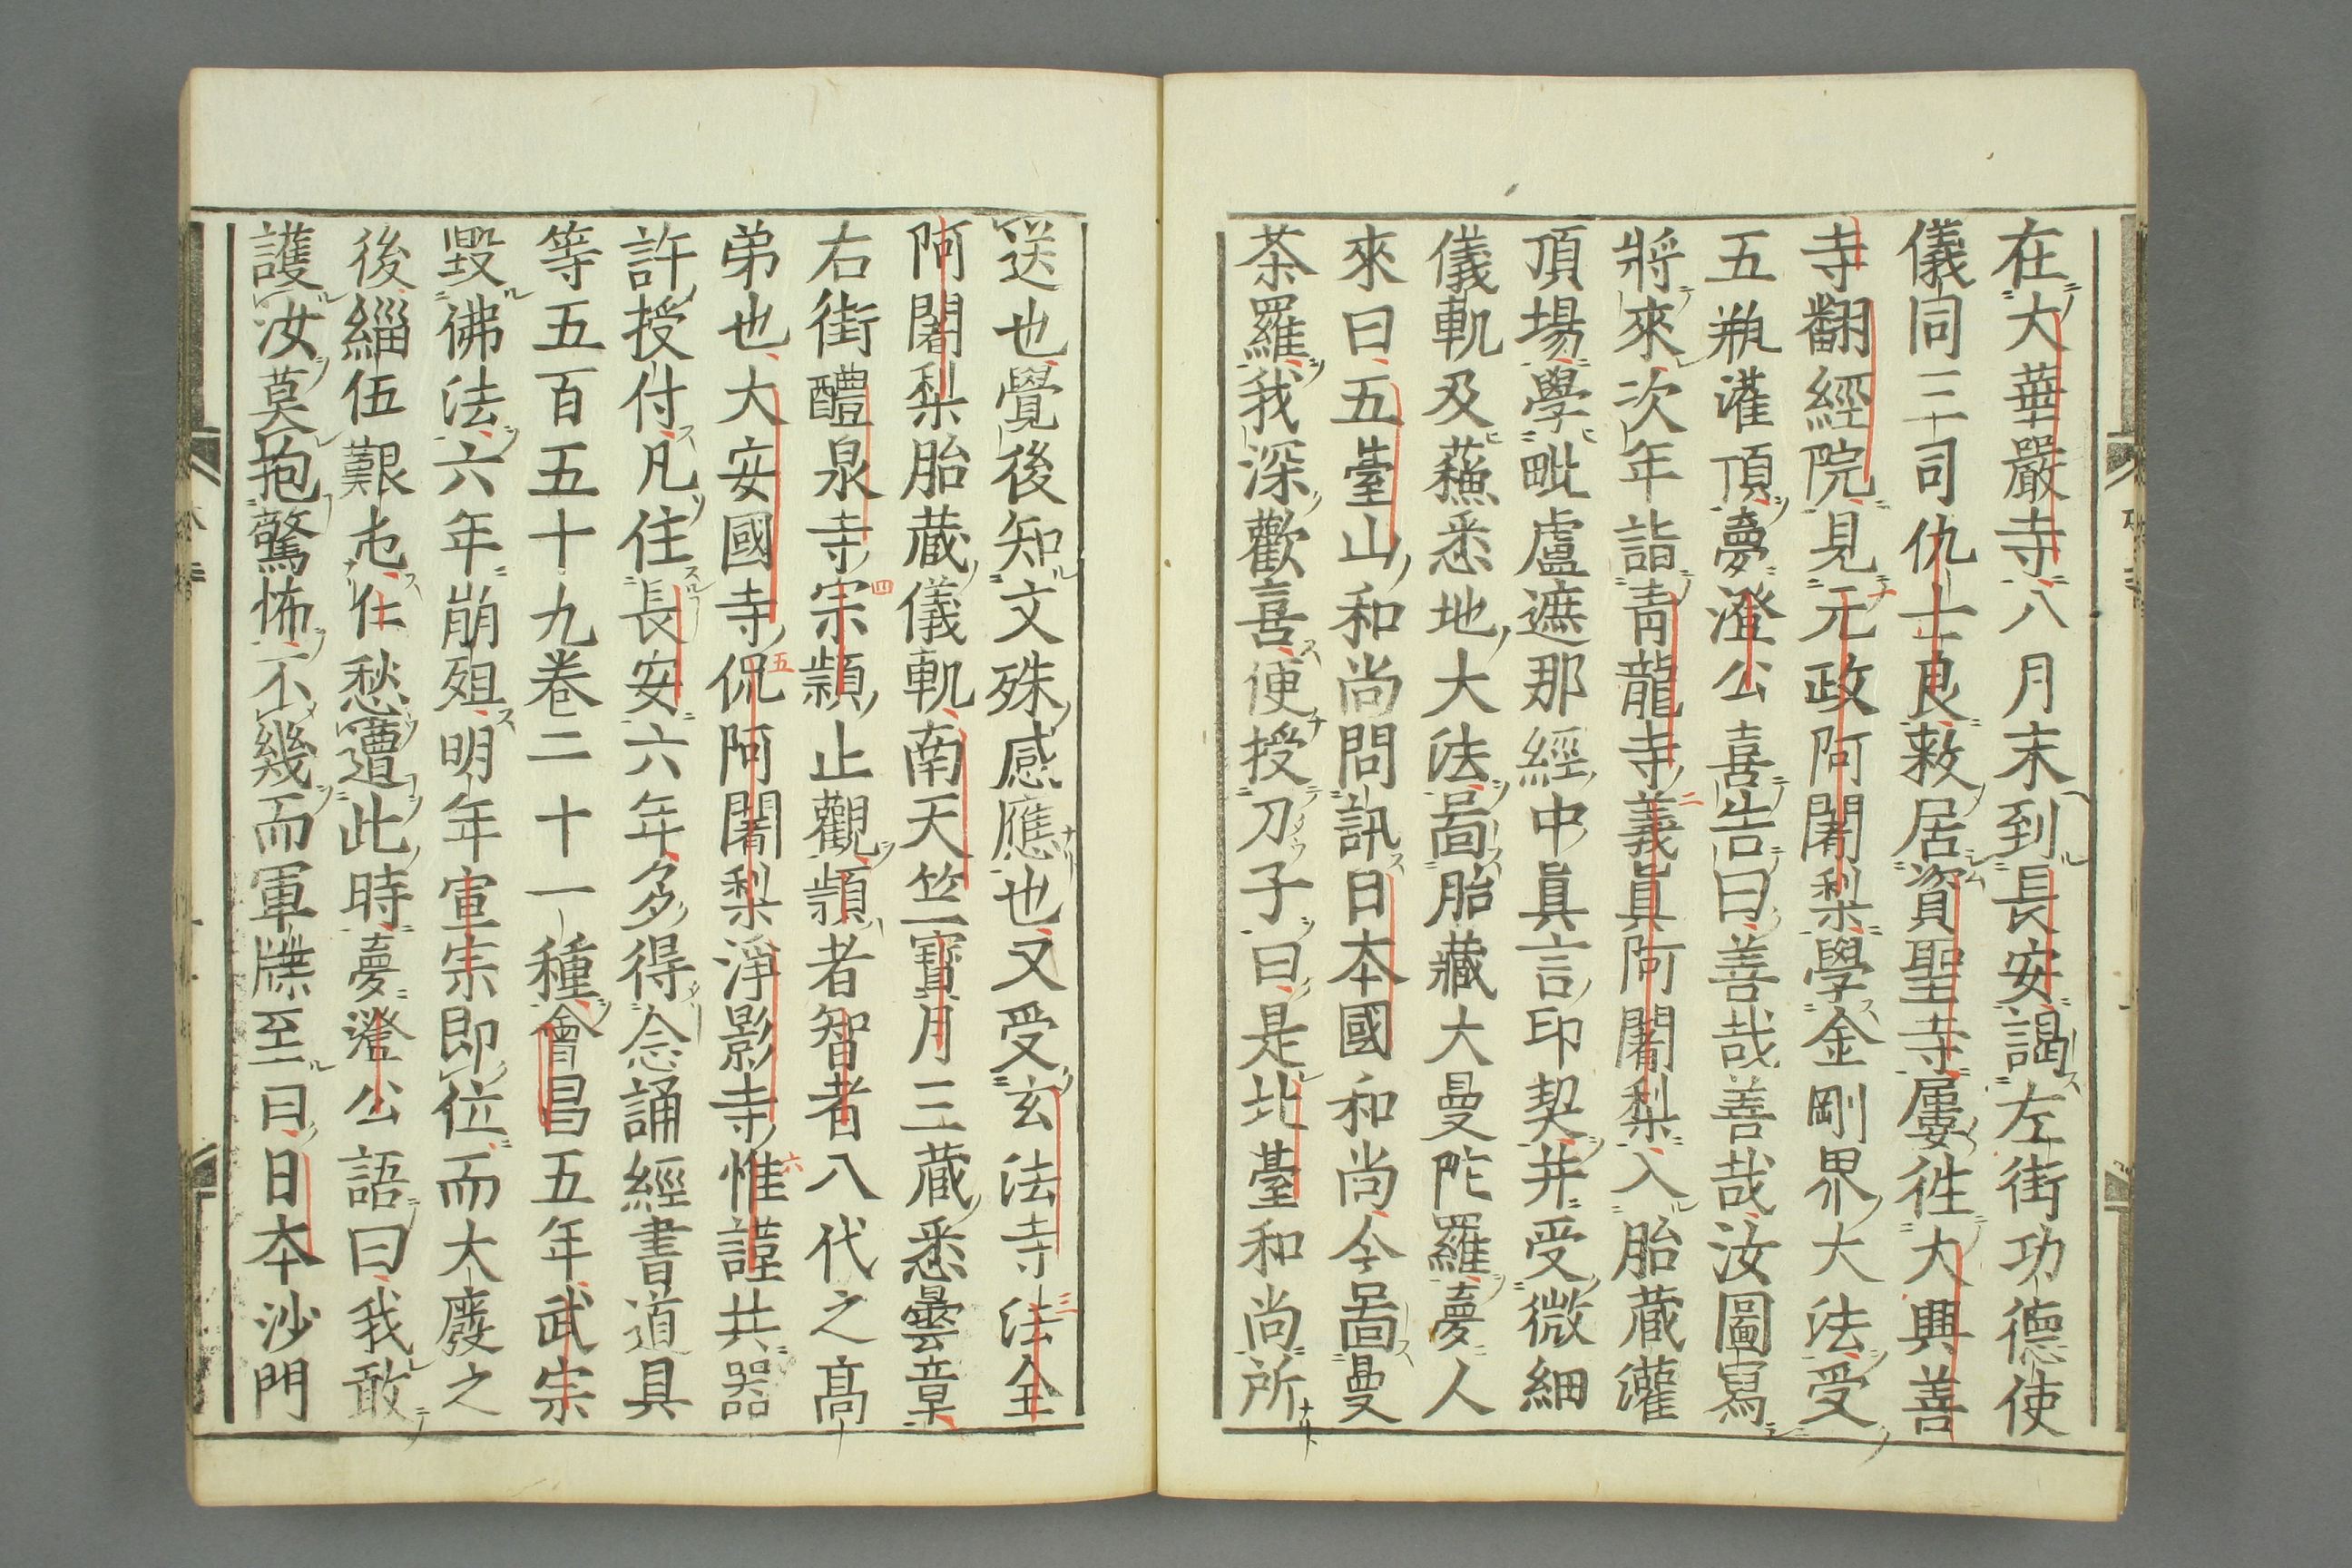 在大華嚴寺八月末到長安謁左街功德使
儀同三司仇士良敕居資聖寺屢徃大興善
寺翻經院見元政阿闍梨學金剛界大法受
五瓶灌頂夢澄公喜告曰善哉善哉汝圖寫
將來次年詣青龍寺義眞阿闍梨入胎藏灌
頂場學毗盧遮那經中眞言印契并受微細
儀軌及蘓悉地大法啚胎藏大曼陀羅夢人
來曰五臺山和尚問訊日本國和尚今啚曼
荼羅我深歡喜便授刀子曰是北臺和尚所
送也覺後知文殊感應也又受玄法寺法全
阿闍梨胎藏儀軌南天竺寶月三藏悉曇章
右街醴泉寺宗顗止觀顗者智者八代之高
弟也大安國寺侃阿闍梨淨影寺惟謹共器
許授付凡住長安六年多得念誦經書道具
等五百五十九卷二十一種會昌五年武宗
毀佛法六年崩殂明年宣宗即位而大廢之
後緇伍艱屯仁愁遭此時夢澄公語曰我敢
護汝莫抱驚怖不幾而軍牒至曰日本沙門